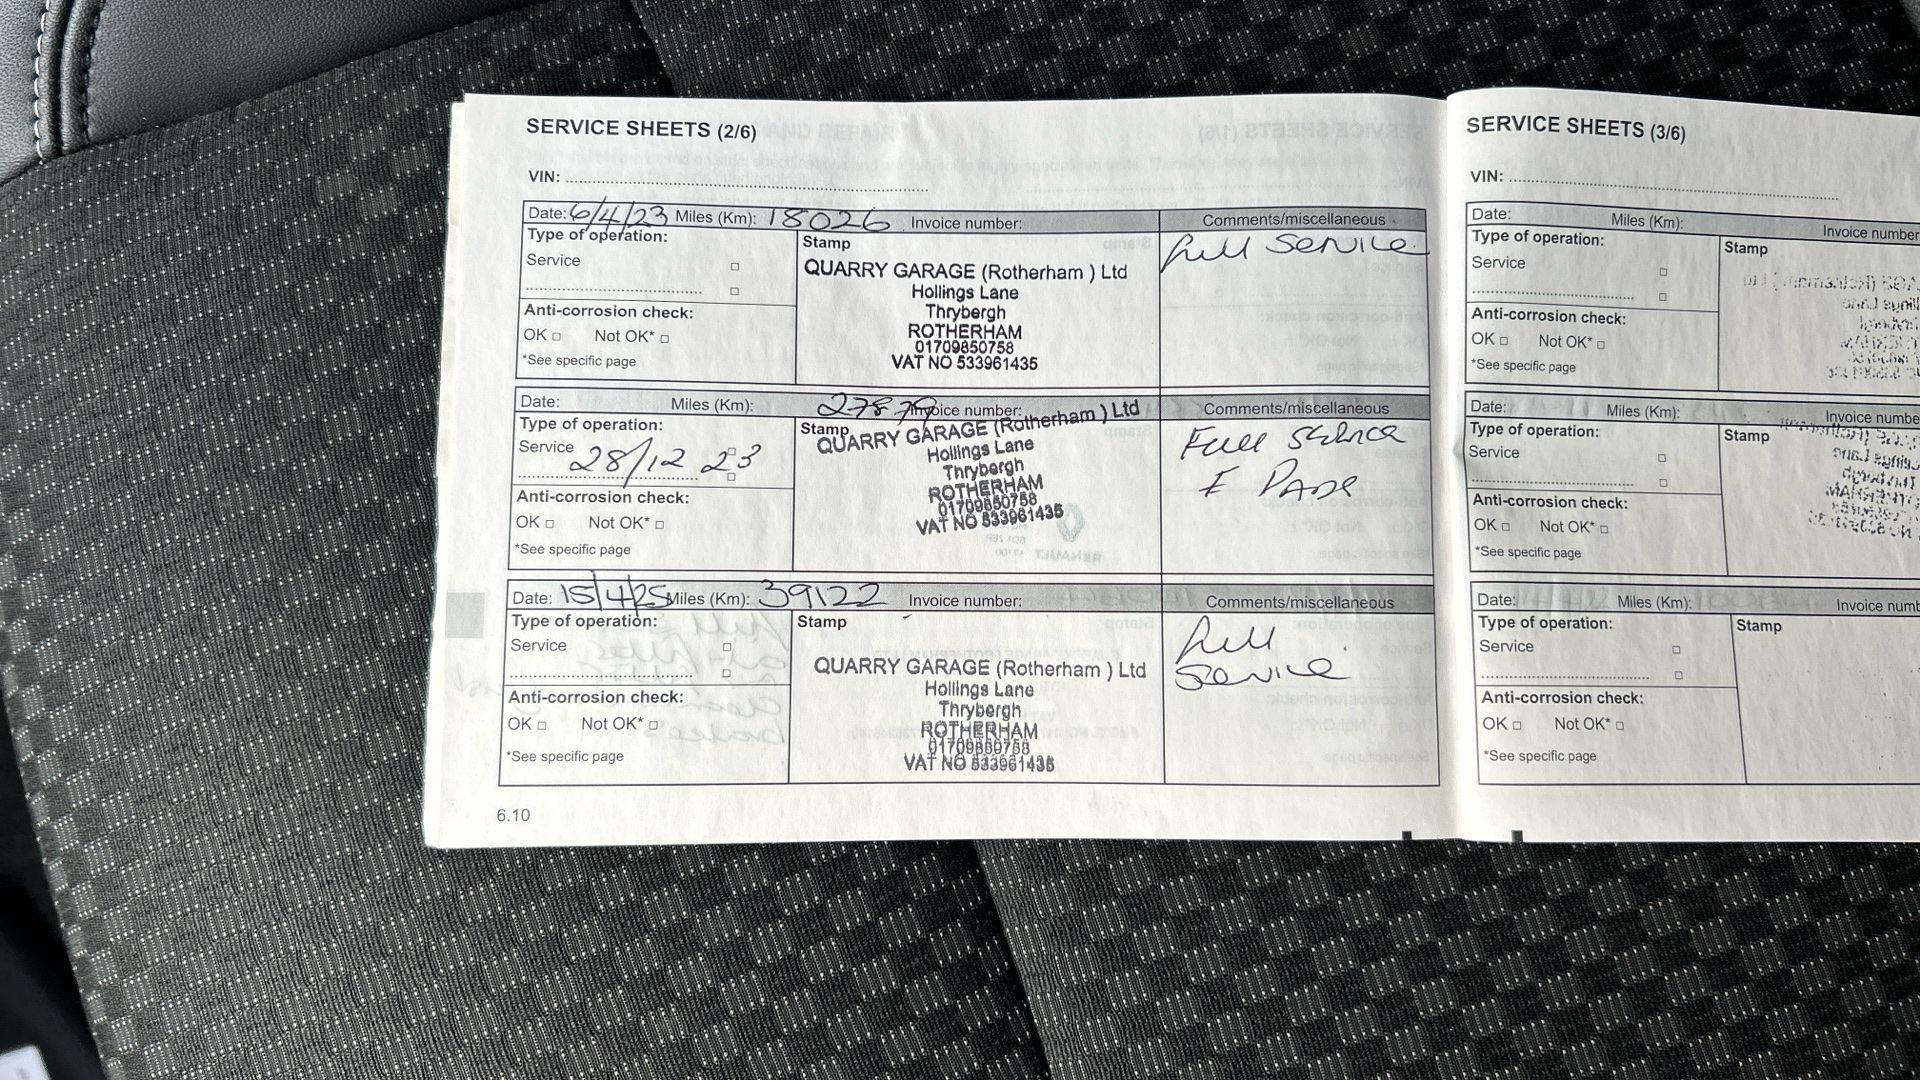 SERVICE SHEETS (2/6)
VIN:
Date: 6/4/23 Miles (Km): 18026 Invoice number: Comments/miscellaneous
Type of operation:
Service
Anti-corrosion check:
OK Not OK*
*See specific page
Stamp
QUARRY GARAGE (Rotherham ) Ltd
Hollings Lane
Thrybergh
ROTHERHAM
01709850758
VAT NO 533961435
full service
Date: Miles (Km): 27879 Invoice number: Comments/miscellaneous
Type of operation:
Service
28/12 23
Anti-corrosion check:
OK Not OK*
*See specific page
Stamp
QUARRY GARAGE (Rotherham ) Ltd
Hollings Lane
Thrybergh
ROTHERHAM
01709850758
VAT NO 533961435
Full Service
Date: 15/4/25 Miles (Km): 39122 Invoice number: Comments/miscellaneous
Type of operation:
Service
Anti-corrosion check:
OK Not OK*
*See specific page
Stamp
QUARRY GARAGE (Rotherham ) Ltd
Hollings Lane
Thrybergh
ROTHERHAM
01709850758
VAT NO 533961435
full
service
6.10
SERVICE SHEETS (3/6)
VIN:
Date: Miles (Km): Invoice number
Type of operation:
Service
Anti-corrosion check:
OK Not OK*
*See specific page
Stamp
Date: Miles (Km): Invoice numbe
Type of operation:
Service
Anti-corrosion check:
OK Not OK*
*See specific page
Stamp
Date: Miles (Km): Invoice numb
Type of operation:
Service
Anti-corrosion check:
OK Not OK*
*See specific page
Stamp